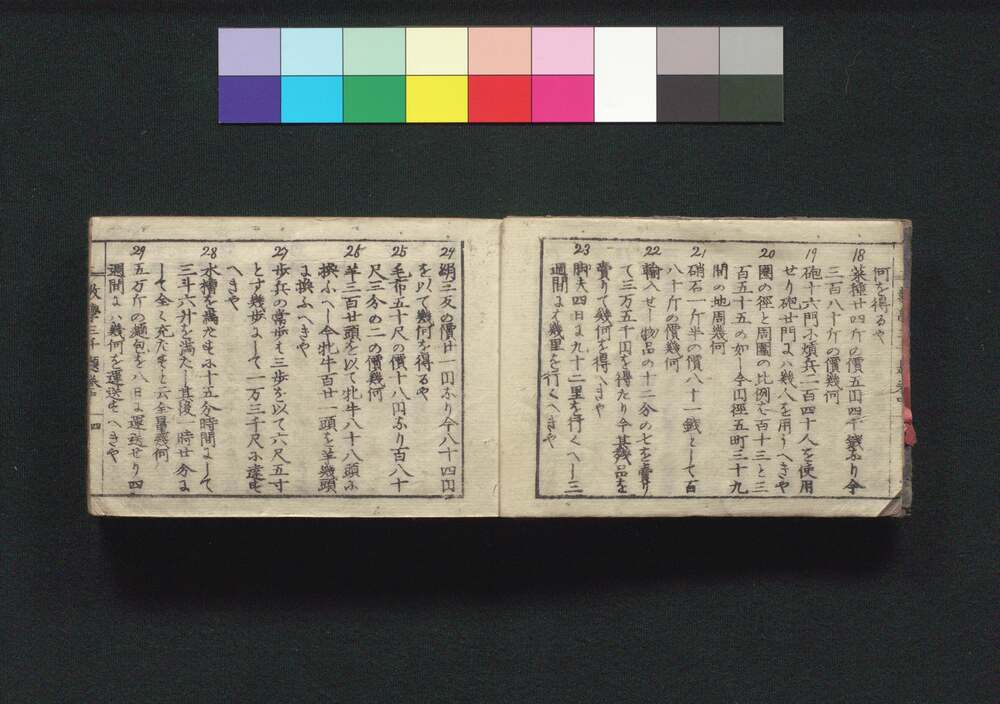 何を得るや
18 菜種廿四斤の價五円四十錢なり今
三百八十斤の價幾何
19 砲十六門に煩兵二百四十人を使用
せり砲廿門には幾人を用うへきや
20 圜の徑と周圍の比例を百十三と三
百五十五の如し今円徑五町三十九
間の地周幾何
21 硝石一斤半の價八十一錢として百
八十斤の價幾何
22 輸入せし物品の十二分の七を賣り
て三万五千円を得たり今其殘品を
賣りて幾何を得へきや
23 脚夫四日に九十二里を行くへし三
週間には幾里を行くへきや
24 絹三反の價廿一円なり今八十四円
を以て幾何を得るや
25 毛布五十尺の價十八円なり百八十
尺三分の二の價幾何
26 羊三百廿頭を以て牝牛八十八頭に
換ふへし今牝牛百廿一頭を羊幾頭
に換ふへきや
27 歩兵の常歩は三歩を以て六尺五寸
とす幾歩にして一万三千尺に達す
へきや
28 水槽を滿たすに十五分時間にして
三斗六升を滿たし其後一時廿分に
して全く充たすと云全量幾何
29 五万斤の麺包を八日に運送せり四
週間には幾何を運送すへきや
數學三千題 卷中 四